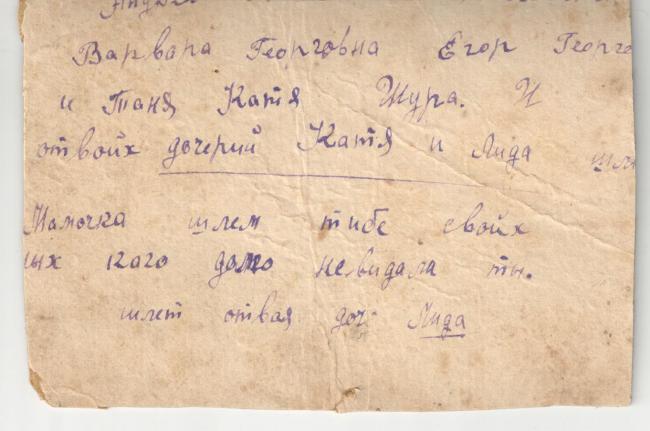 Варвара Георговна Егор Георге
и Таня Катя Шура. И
отвойх дочерий Катя и Лида шл
Мамочка шлем тибе свойх
ых каго давно невидала ты.
шлет отвая доч Лида